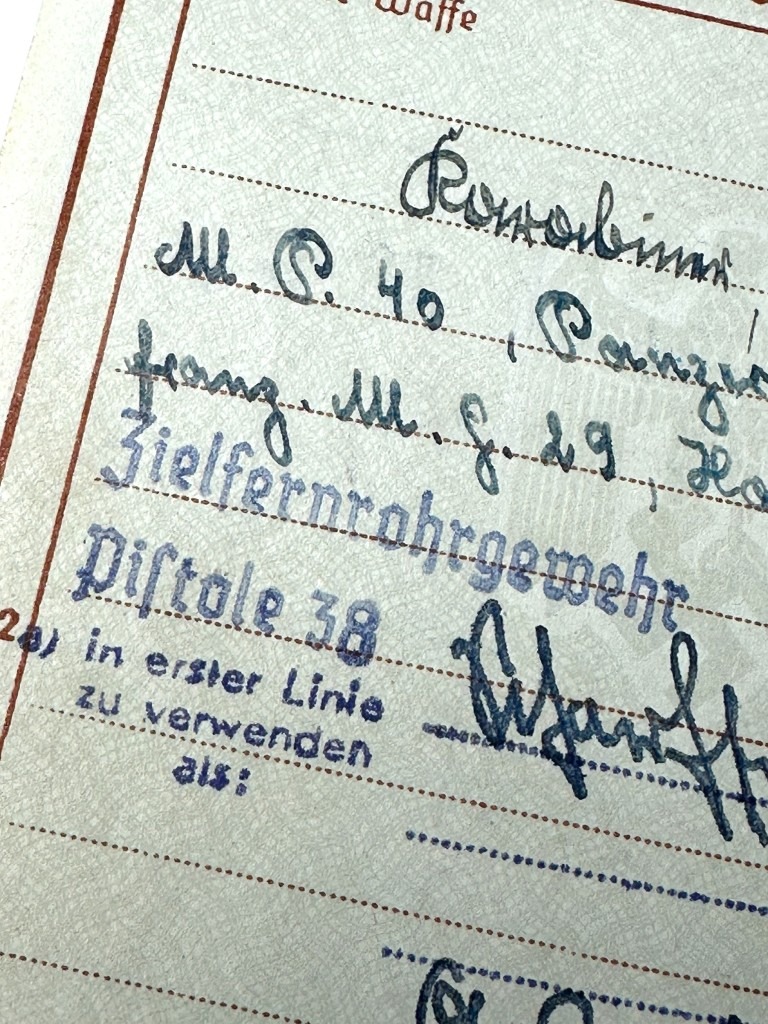 Waffe
Karabiner
M. P. 40, Panzer
franz. M. G. 29,
Zielfernrohrgewehr
Pistole 38
2a) in erster Linie
zu verwenden
als:
Scharfsch